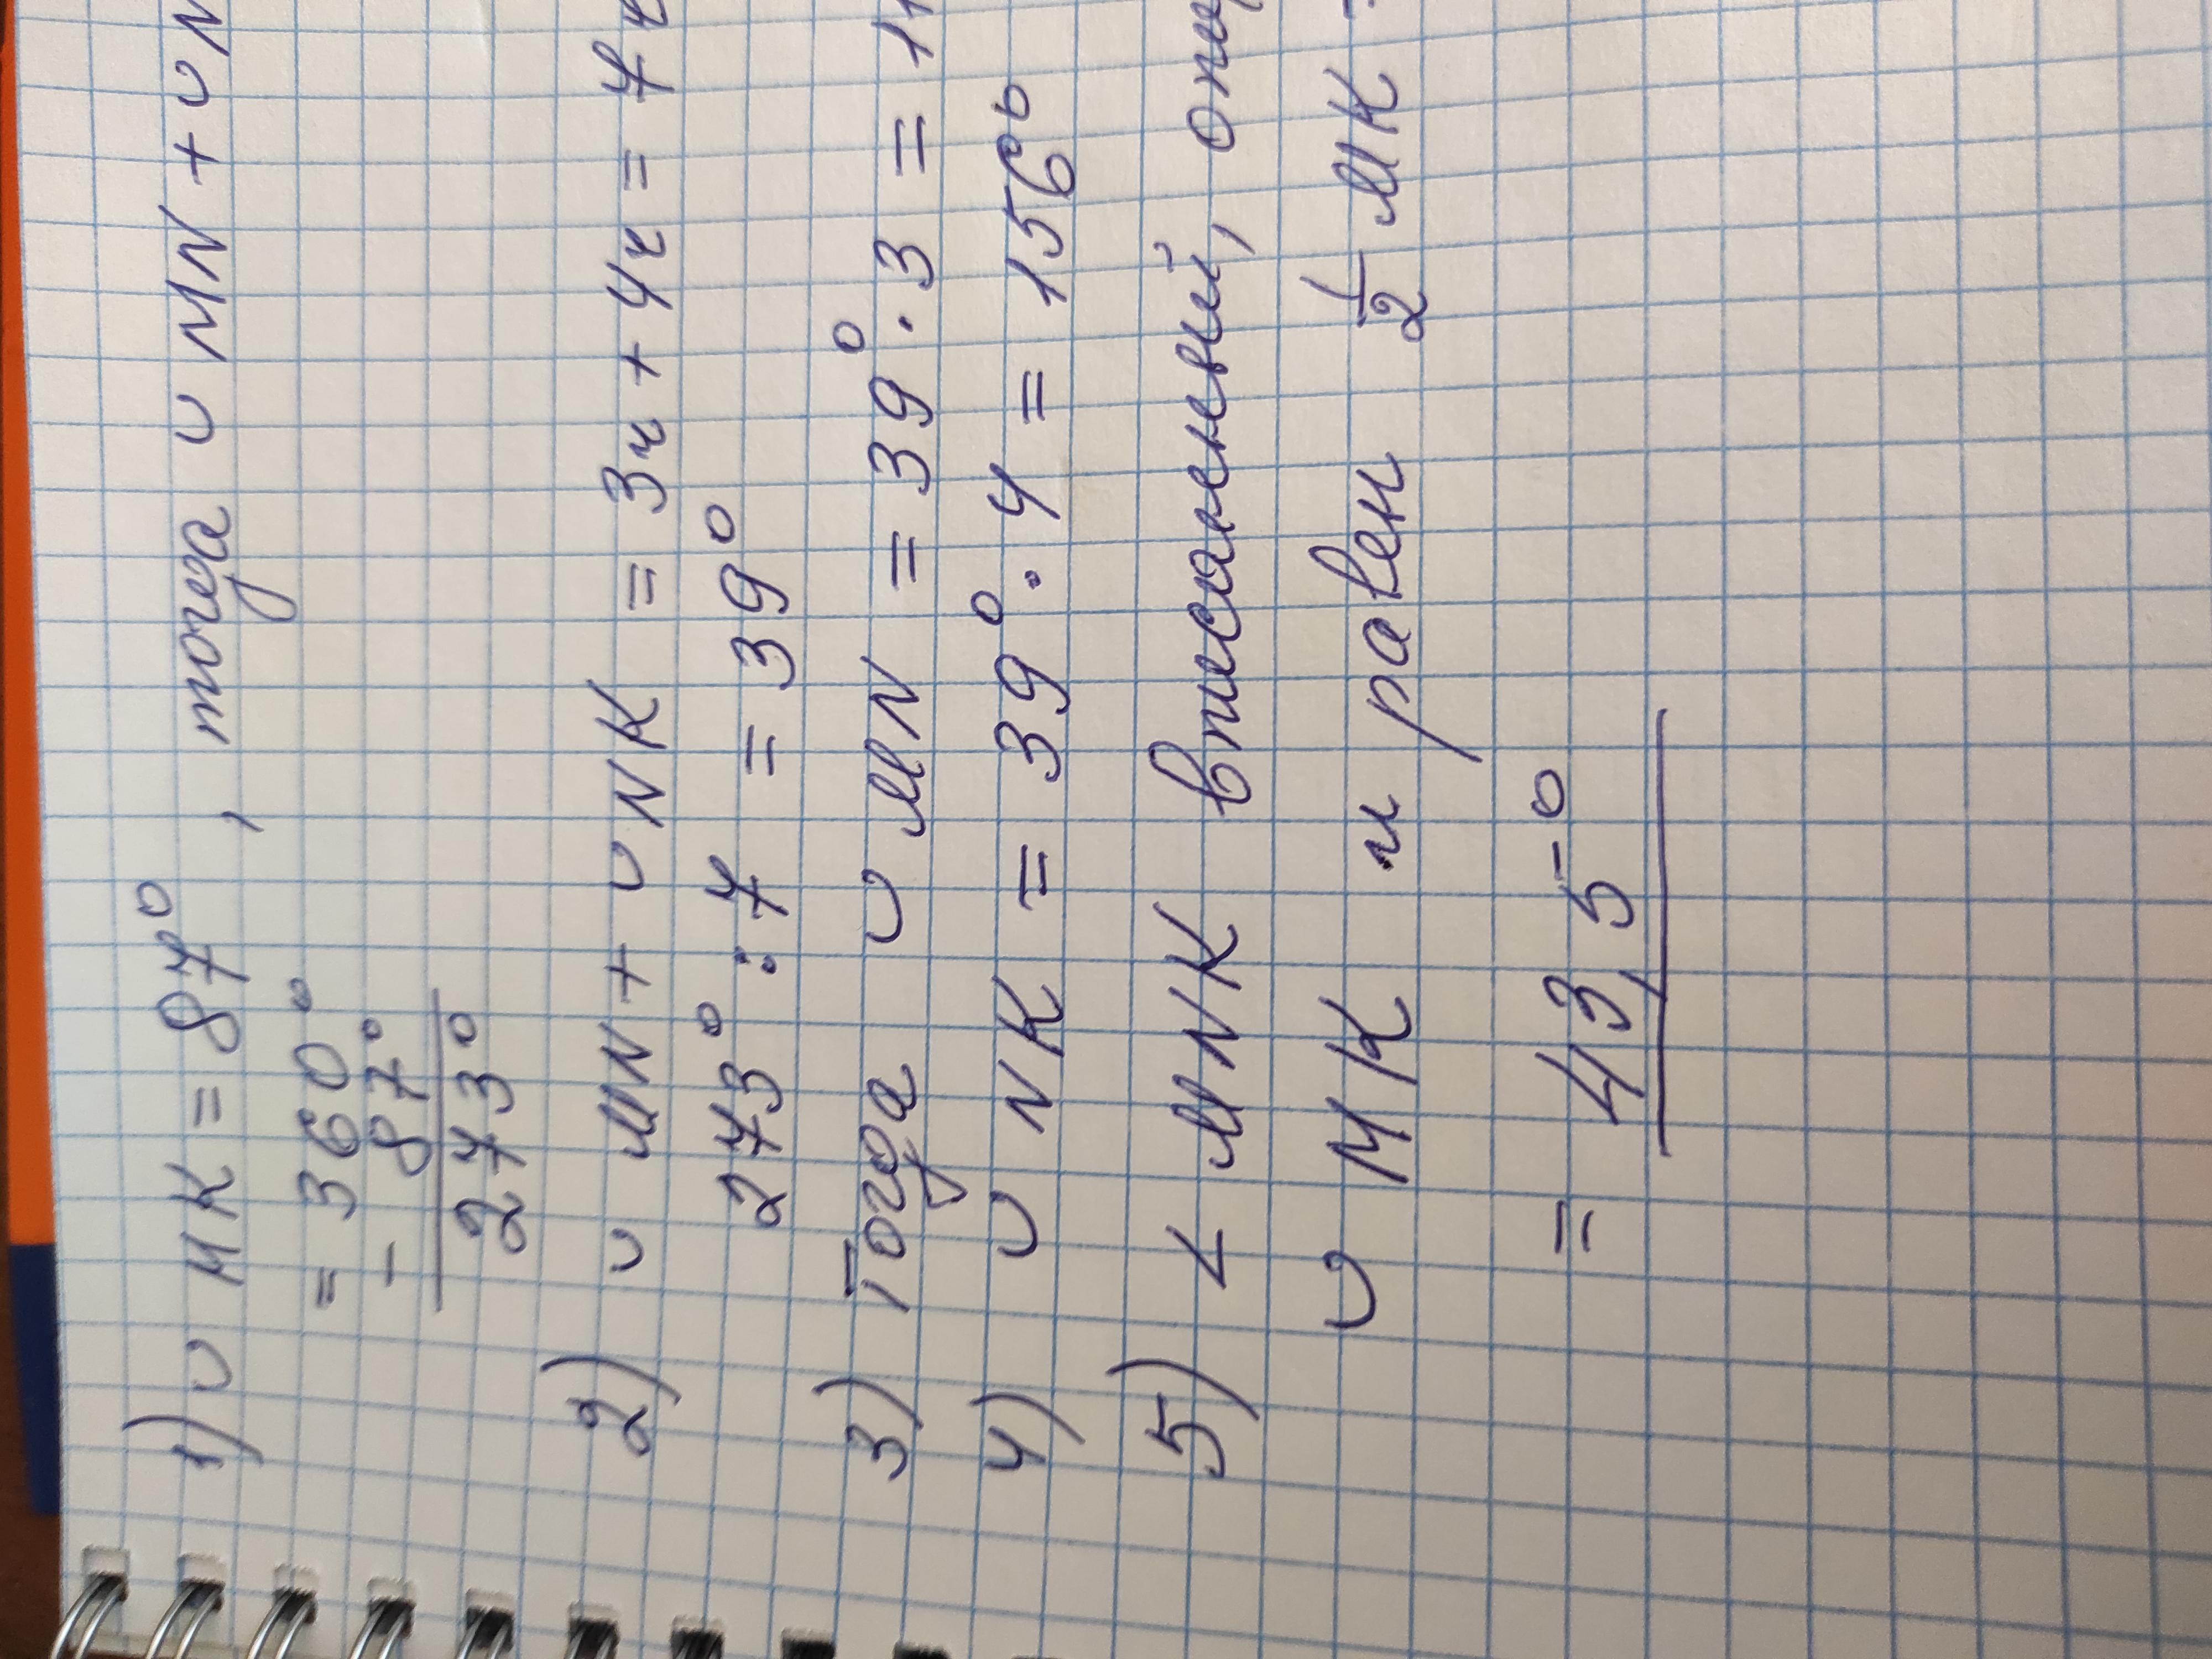 1) ∪ MK = 87°, тогда ∪ MN + ∪ N
= 360°
- 87°
273°
2) ∪ MN + ∪ NK = 3ч + 4ч = 7ч
273° : 7 = 39°
3) Тогда ∪ MN = 39° · 3 = 11
4) ∪ NK = 39° · 4 = 156°
5) ∠ MNK вписанный,
∪ MK и равен 1/2 MK
= 43,5°